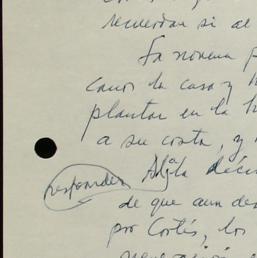 recuerdan si al
La novena p
canos la casa y h
plantar en la h
a su costa, y
responder Al la déci
de que aun des
por Cortés, los